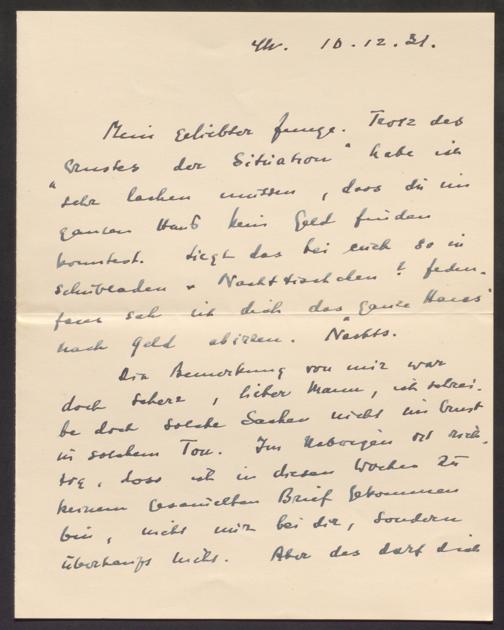 10.12.31.
Mein geliebter Junge. Trotz des
"Ernstes der Situation" habe ich
sehr lachen müssen, dass du im
ganzen Haus kein Geld finden
konntest. Liegt das bei euch so in
Schubladen + Nachttischchen? Jeden-
falls sah ich dich das ganze Haus
nach Geld abirren. Nachts.
Die Bemerkung von mir war
doch Scherz, lieber Mann, ich schrei-
be doch solche Sachen nicht im Ernst
in solchem Ton. Im Uebrigen ist rich-
tig, dass ich in diesen Wochen zu
keinem gesammelten Brief gekommen
bin, nicht nur bei dir, sondern
überhaupt nicht. Aber das darf dich